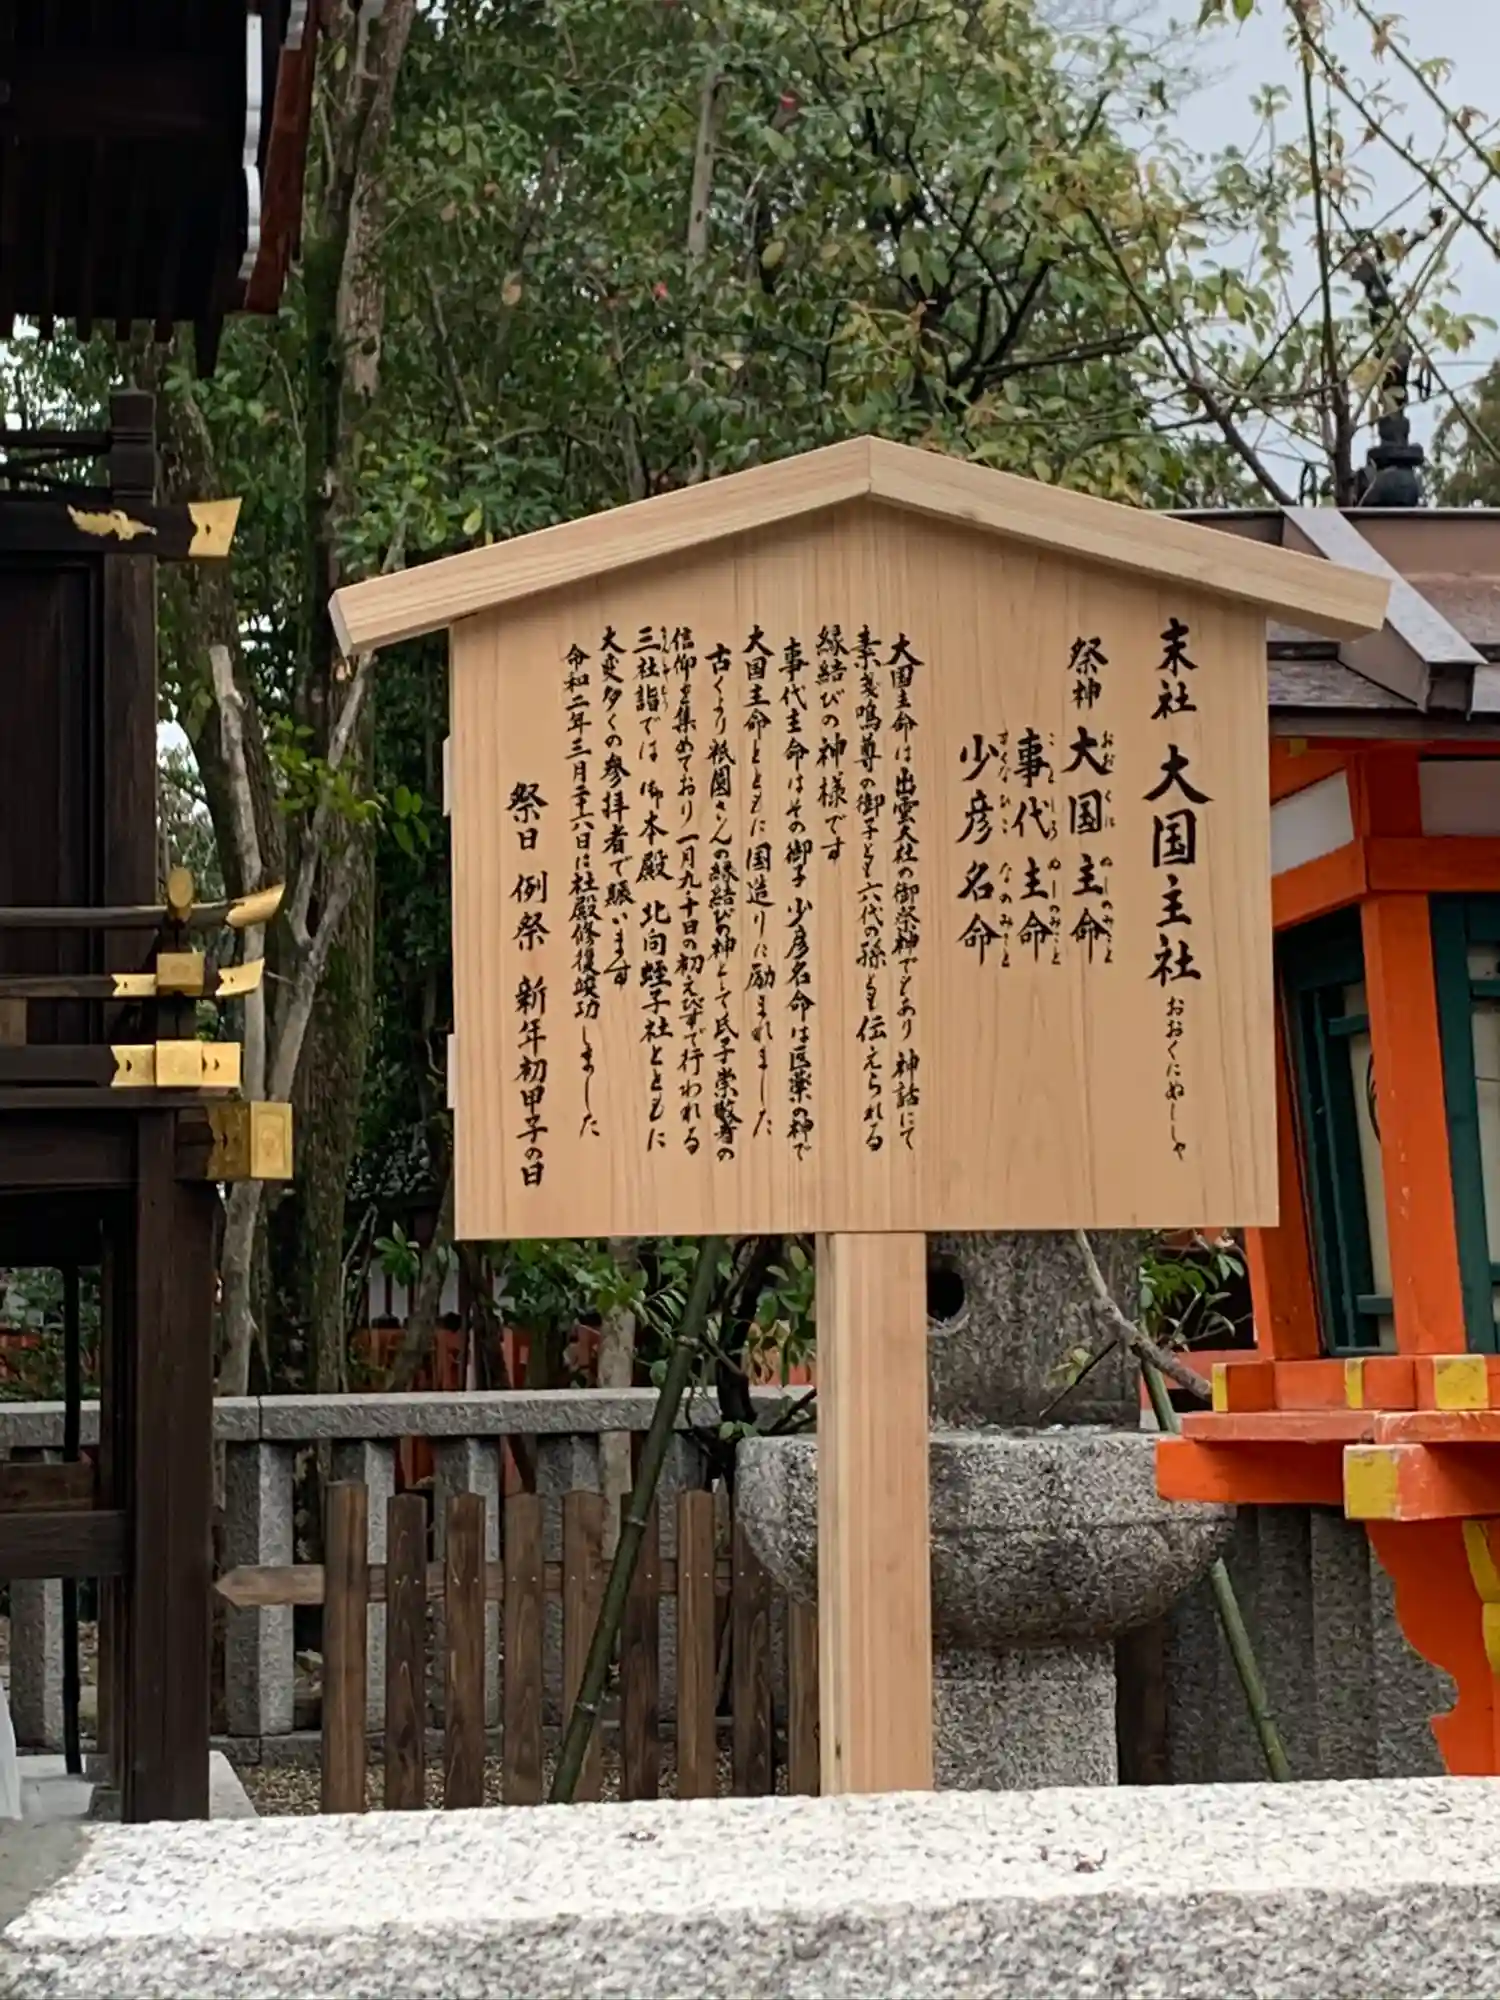 末社 大国主社 おおくにぬししゃ
祭神 大国主命 おおくにぬしのみこと
事代主命 ことしろぬしのみこと
少彦名命 すくなひこなのみこと
大国主命は出雲大社の御祭神でもあり 神話にて
素戔嗚尊の御子とも六代の孫とも伝えられる
縁結びの神様です
事代主命はその御子 少彦名命は医薬の神で
大国主命とともに国造りに励まれました
古くより祇園さんの縁結びの神として氏子崇敬者の
信仰を集めており 一月九・十日の初えびすで行われる
三社詣では 御本殿 北向蛭子社とともに
大変多くの参拝者で賑います
令和二年三月二十六日に社殿修復竣功しました
祭日 例祭 新年初甲子の日